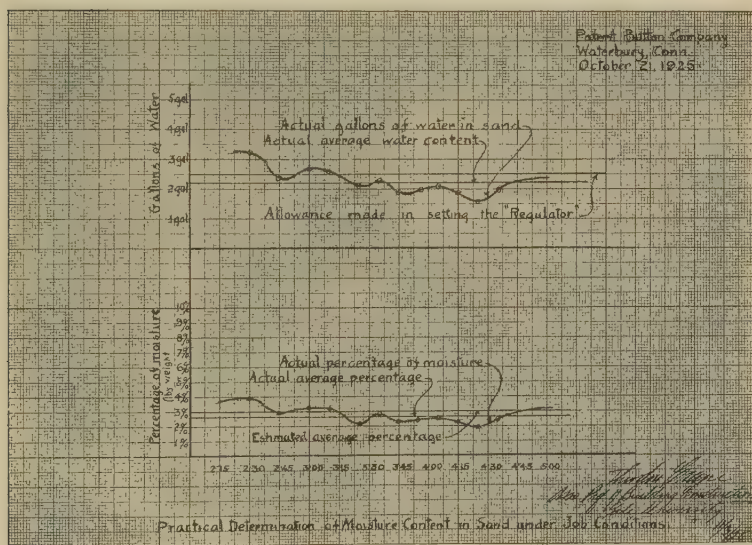 Patent Button Company
Waterbury, Conn.
October 21, 1925
Gallons of Water
5gal
4gal
3gal
2gal
1gal
Actual gallons of water in sand
Actual average water content
Allowance made in setting the "Regulator"
Percentage of moisture
(by weight)
10%
9%
8%
7%
6%
5%
4%
3%
2%
1%
Actual percentage of moisture
Actual average percentage
Estimated average percentage
2:15 2:30 2:45 3:00 3:15 3:30 3:45 4:00 4:15 4:30 4:45 5:00
of Building Construction
Practical Determination of Moisture Content in Sand under Job Conditions.